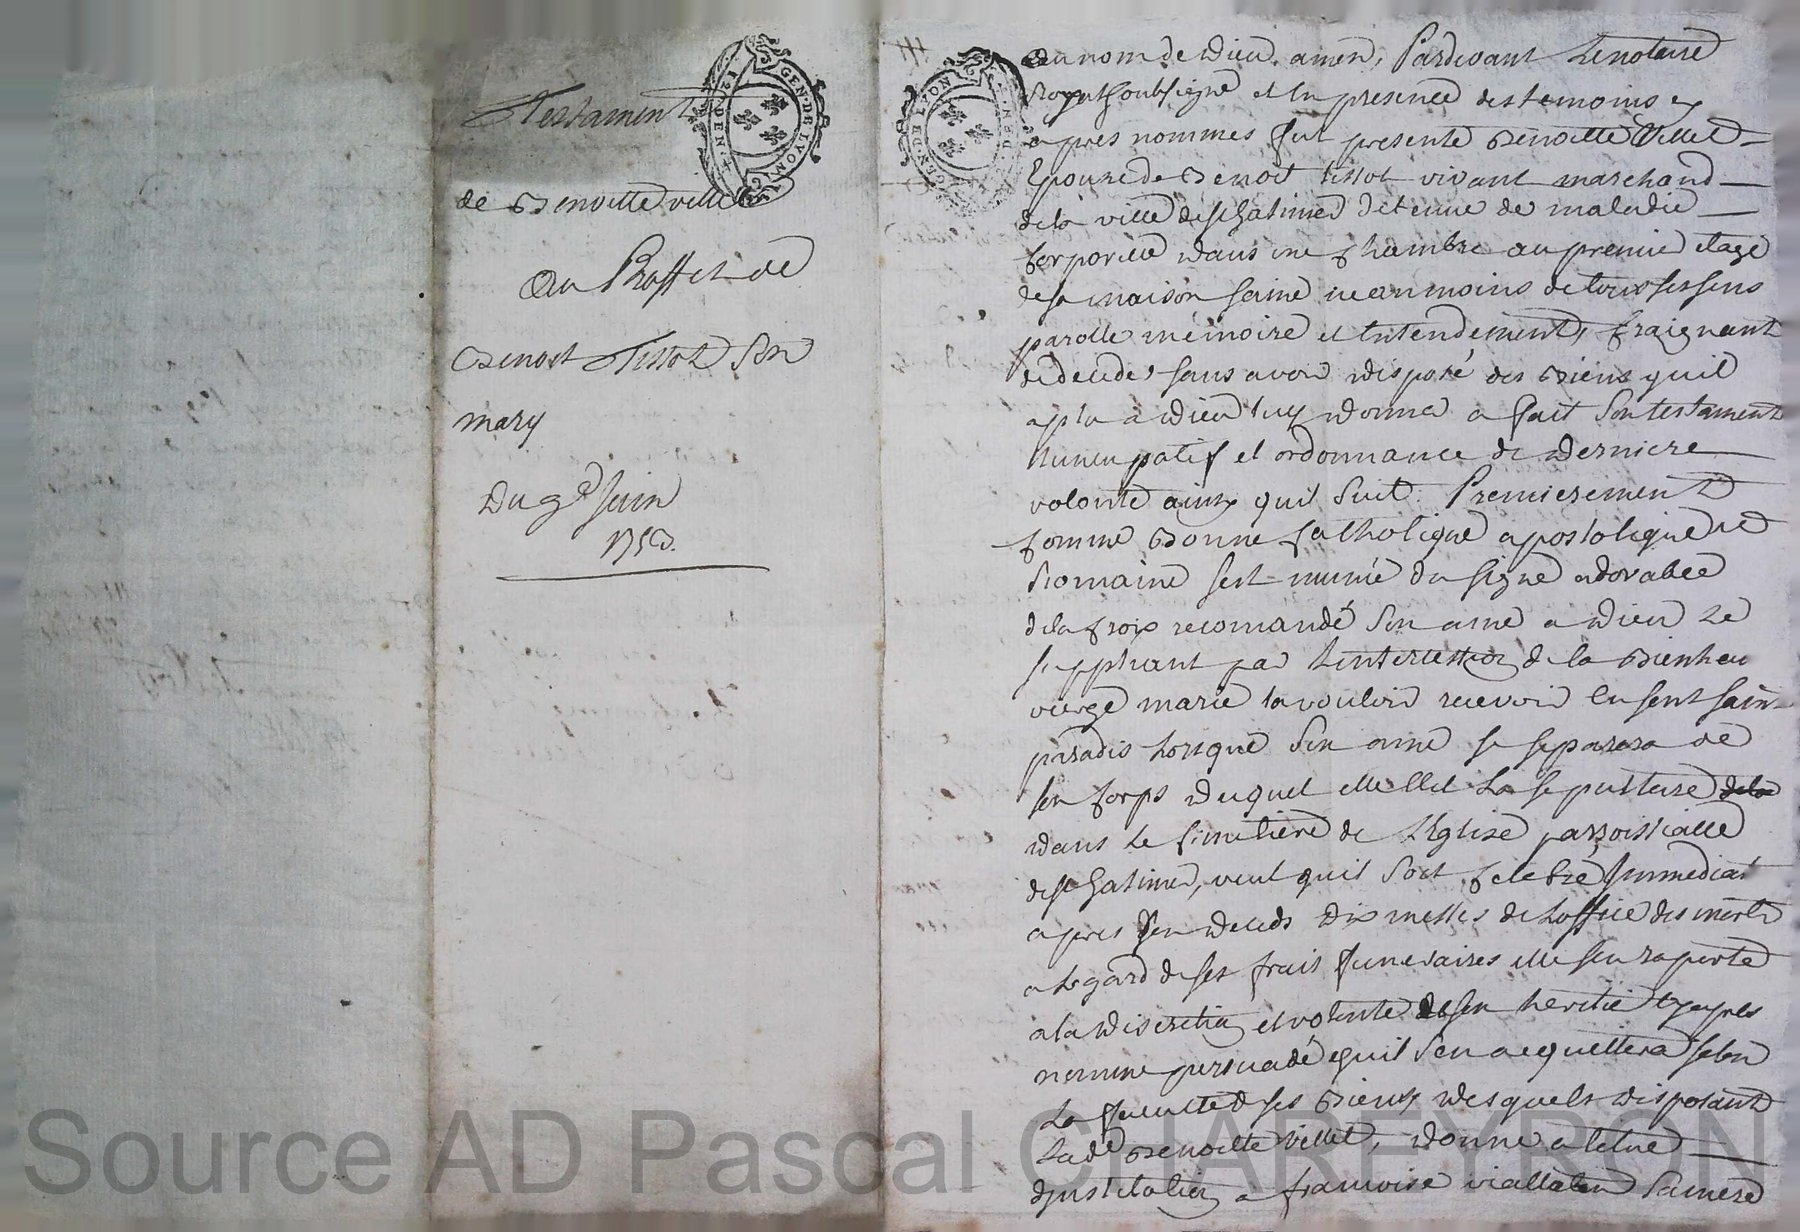 Testament
de Benoitte villet
Au Proffit de
Benoit Tissot Son
mary
Du 9e Juin
1753.
GEN·DE LYON
GEN·DE LYON
Au nom de Dieu amen, Pardevant Le notaire
Royal Soubsigné et En presence des temoins cy
apres nommés fut presente Benoitte Villet
Epouze de Benoit tissot vivant marchand
de la ville de St Galmier detenue de maladie
Corporelle dans une Chambre au premier etage
de sa maison Saine neanmoins de tous ses sens
parolle mémoire et Entendement, Craignant
de deceder Sans avoir disposé des Biens quil
a plu a Dieu luy donner a fait Son testament
Nuncupatif et ordonnance de Derniere
volonté ainsy quil Suit. Premierement
Comme Bonne Catholique apostolique et
Romaine sest munie du Signe adorable
de la Croix recomandé Son ame a Dieu Le
suppliant par Lintercession de la Bienheu
vierge marie la vouloir recevoir En sont Saint
paradis Lorsque Son ame se separera de
son Corps Duquel elle Elit La Sepulture
dans Le Cimetiere de LEglize parroissialle
de St Galmier, veut quil Soit Celebré Immediat
apres Son Deceds Dix messes de Loffice des morts
a Legard de ses frais funeraires elle Sen raporte
a la Discretion et volonté de son heritier Cy apres
nommé persuadé quil Sen acquittera Selon
La faculté de ses Biens Desquels disposant
Lade Benoitte Villet, Donne a titre
dinstitution a francoise viallaton Sa mere
Source AD Pascal CHAREYRON